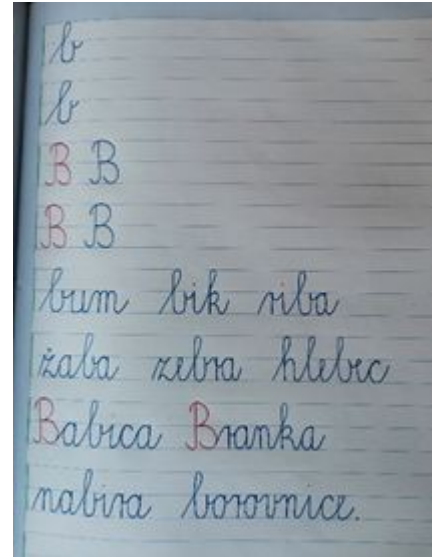 b
b
B B
B B
bum bik riba
žaba zebra hlebec
Babica Branka
nabira borovnice.